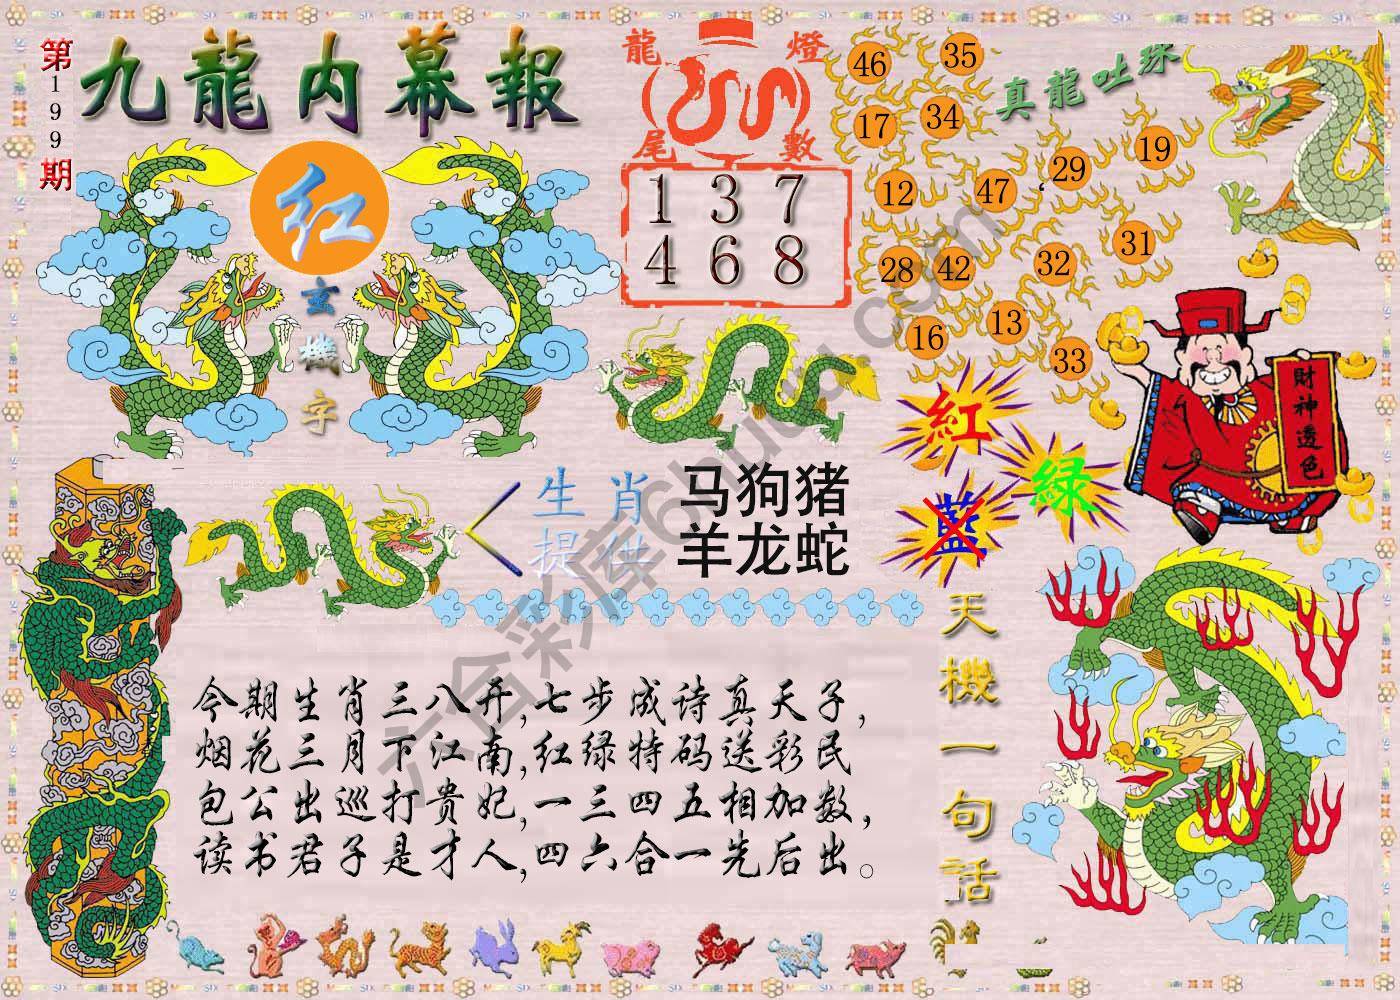 第199期
九龍内幕報
红
玄機字
龍燈
尾數
1 3 7
4 6 8
真龍吐珠
46 35
17 34
12 47 29 19
28 42 32 31
16 13 33
財神透色
紅
绿
藍
生肖
提供
马狗猪
羊龙蛇
天機一句話
今期生肖三八开,七步成诗真天子,
烟花三月下江南,红绿特码送彩民
包公出巡打贵妃,一三四五相加数,
读书君子是才人,四六合一先后出。
六合彩库6hudd.com